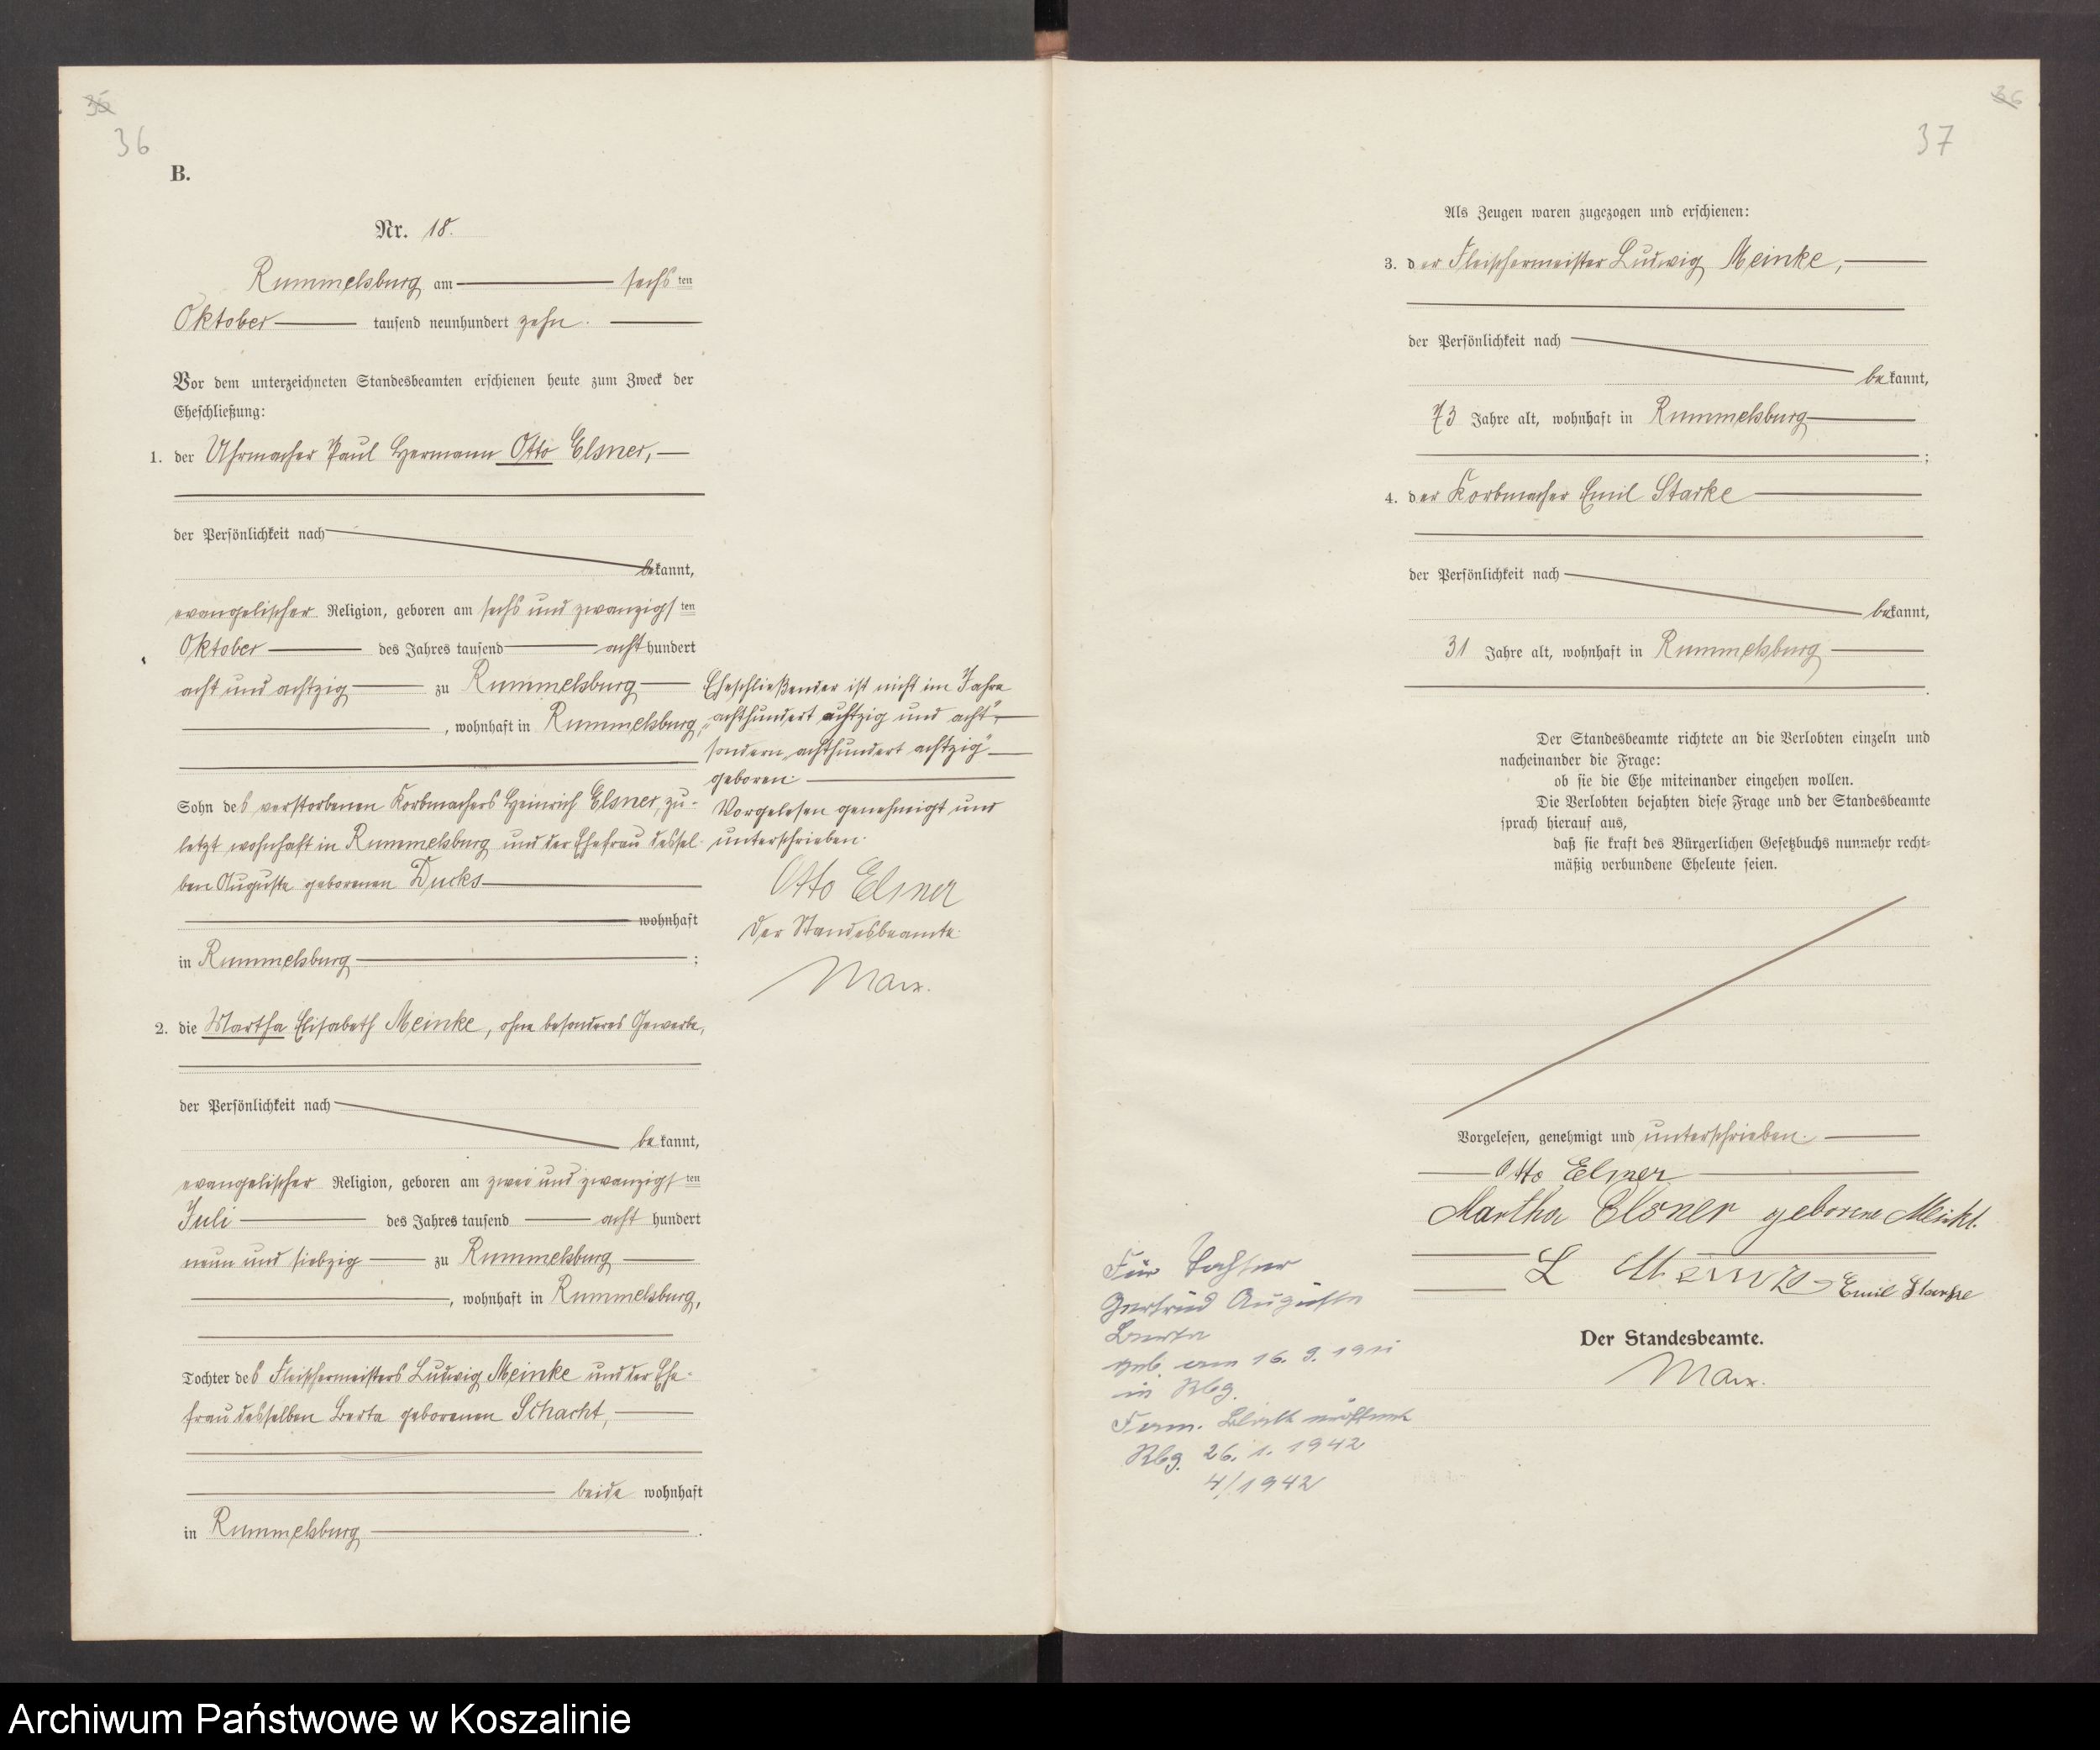 35
36
B.
Nr. 18.
Rummelsburg am sechsten
Oktober tausend neunhundert zehn.
Vor dem unterzeichneten Standesbeamten erschienen heute zum Zweck der
Eheschließung:
1. der Uhrmacher Paul Hermann Otto Elsner,
der Persönlichkeit nach
bekannt,
evangelischer Religion, geboren am sechs und zwanzigsten
Oktober des Jahres tausend achthundert
acht und achtzig zu Rummelsburg
, wohnhaft in Rummelsburg,
Sohn des verstorbenen Korbmachers Heinrich Elsner, zu-
letzt wohnhaft in Rummelsburg und der Ehefrau dessel-
ben Auguste geborenen Ducks
wohnhaft
in Rummelsburg ;
2. die Martha Elisabeth Meinke, ohne besonderes Gewerbe,
der Persönlichkeit nach
bekannt,
evangelischer Religion, geboren am zwei und zwanzigsten
Juli des Jahres tausend acht hundert
neun und siebzig zu Rummelsburg
, wohnhaft in Rummelsburg,
Tochter des Fleischermeisters Ludwig Meinke und der Ehe-
frau desselben Berta geborenen Schacht,
beide wohnhaft
in Rummelsburg .
Eheschließender ist nicht im Jahre
„achthundert achtzig und acht",
sondern „achthundert achtzig"
geboren.
Vorgelesen genehmigt und
unterschrieben.
Otto Elsner
Der Standesbeamte.
Marx.
36
37
Als Zeugen waren zugezogen und erschienen:
3. der Fleischermeister Ludwig Meinke,
der Persönlichkeit nach
bekannt,
73 Jahre alt, wohnhaft in Rummelsburg
;
4. der Korbmacher Emil Starke
der Persönlichkeit nach
bekannt,
31 Jahre alt, wohnhaft in Rummelsburg
.
Der Standesbeamte richtete an die Verlobten einzeln und
nacheinander die Frage:
ob sie die Ehe miteinander eingehen wollen.
Die Verlobten bejahten diese Frage und der Standesbeamte
sprach hierauf aus,
daß sie kraft des Bürgerlichen Gesetzbuchs nunmehr recht-
mäßig verbundene Eheleute seien.
Vorgelesen, genehmigt und unterschrieben.
Otto Elsner
Martha Elsner geborene
L Emil Starke
Der Standesbeamte.
Marx.
Für Tochter
Gertrud Auguste
Berta
geb. am 16. 9. 1911
in Rbg.
Fam. Blatt eröffnet
Rbg. 26. 1. 1942
4/1942
Archiwum Państwowe w Koszalinie